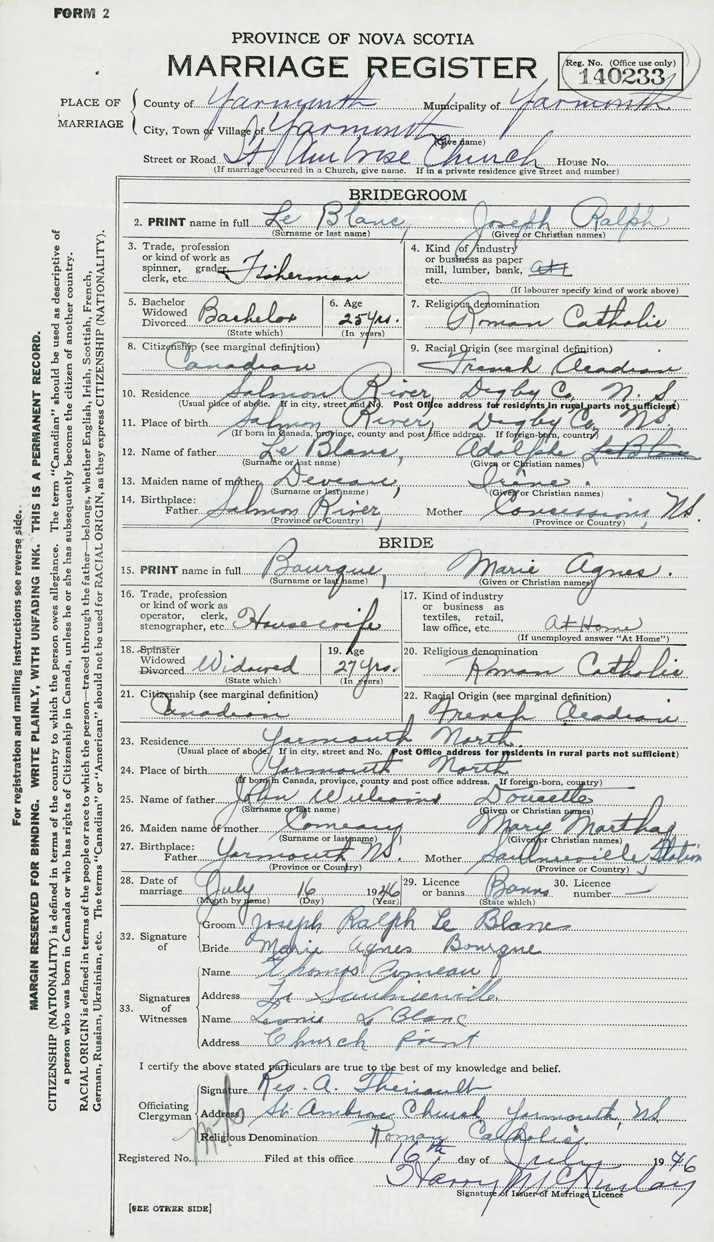 FORM 2
PROVINCE OF NOVA SCOTIA
MARRIAGE REGISTER
Reg. No. (Office use only)
140233
PLACE OF MARRIAGE
County of Yarmouth Municipality of Yarmouth
City, Town or Village of Yarmouth
(Give name)
Street or Road St Ambrose Church House No.
(If marriage occurred in a Church, give name. If in a private residence give street and number)
BRIDEGROOM
2. PRINT name in full Le Blanc, Joseph Ralph
(Surname or last name) (Given or Christian names)
3. Trade, profession or kind of work as spinner, grader, clerk, etc. Fisherman
4. Kind of industry or business as paper mill, lumber, bank, etc.
(If labourer specify kind of work above)
5. Bachelor Widowed Divorced Bachelor
(State which)
6. Age 25 yrs.
(In years)
7. Religious denomination
Roman Catholic
8. Citizenship (see marginal definition)
Canadian
9. Racial Origin (see marginal definition)
French Acadian
10. Residence Salmon River, Digby Co, N. S.
(Usual place of abode. If in city, street and No. Post Office address for residents in rural parts not sufficient)
11. Place of birth Salmon River, Digby Co, NS.
(If born in Canada, province, county and post office address. If foreign-born, country)
12. Name of father Le Blanc, Adolphe Le Blanc
(Surname or last name) (Given or Christian names)
13. Maiden name of mother Deveau, Irène.
(Surname or last name) (Given or Christian names)
14. Birthplace: Father Salmon River, Mother Concessions, NS.
(Province or Country) (Province or Country)
BRIDE
15. PRINT name in full Bourque, Marie Agnes.
(Surname or last name) (Given or Christian names)
16. Trade, profession or kind of work as operator, clerk, stenographer, etc. Housewife
17. Kind of industry or business as textiles, retail, law office, etc. At Home
(If unemployed answer "At Home")
18. Spinster Widowed Divorced Widowed
(State which)
19. Age 27 yrs.
(In years)
20. Religious denomination
Roman Catholic
21. Citizenship (see marginal definition)
Canadian
22. Racial Origin (see marginal definition)
French Acadian
23. Residence Yarmouth North
(Usual place of abode. If in city, street and No. Post Office address for residents in rural parts not sufficient)
24. Place of birth Yarmouth North
(If born in Canada, province, county and post office address. If foreign-born, country)
25. Name of father John Williams Doucette
(Surname or last name) (Given or Christian names)
26. Maiden name of mother Comeau, Mary Martha
(Surname or last name) (Given or Christian names)
27. Birthplace: Father Yarmouth NS. Mother Saulnierville Station
(Province or Country) (Province or Country)
28. Date of marriage July 16 1946
(Month by name) (Day) (Year)
29. Licence or banns Banns
(State which)
30. Licence number —
32. Signature of
Groom Joseph Ralph Le Blanc
Bride Marie Agnes Bourque
33. Signatures of Witnesses
Name Thomas Comeau
Address Saulnierville
Name Leonie LeBlanc
Address Church Point
I certify the above stated particulars are true to the best of my knowledge and belief.
Officiating Clergyman
Signature Rev. A. Theriault
Address St. Ambrose Church, Yarmouth, NS
Religious Denomination Roman Catholic.
Registered No. Filed at this office 16th day of July 1946
Harry McKinlay
Signature of Issuer of Marriage Licence
[SEE OTHER SIDE]
For registration and mailing instructions see reverse side.
MARGIN RESERVED FOR BINDING. WRITE PLAINLY, WITH UNFADING INK. THIS IS A PERMANENT RECORD.
CITIZENSHIP (NATIONALITY) is defined in terms of the country to which the person owes allegiance. The term "Canadian" should be used as descriptive of
a person who was born in Canada or who has rights of Citizenship in Canada, unless he or she has subsequently become the citizen of another country.
RACIAL ORIGIN is defined in terms of the people or race to which the person—traced through the father—belongs, whether English, Irish, Scottish, French,
German, Russian, Ukrainian, etc. The terms "Canadian" or "American" should not be used for RACIAL ORIGIN, as they express CITIZENSHIP (NATIONALITY).